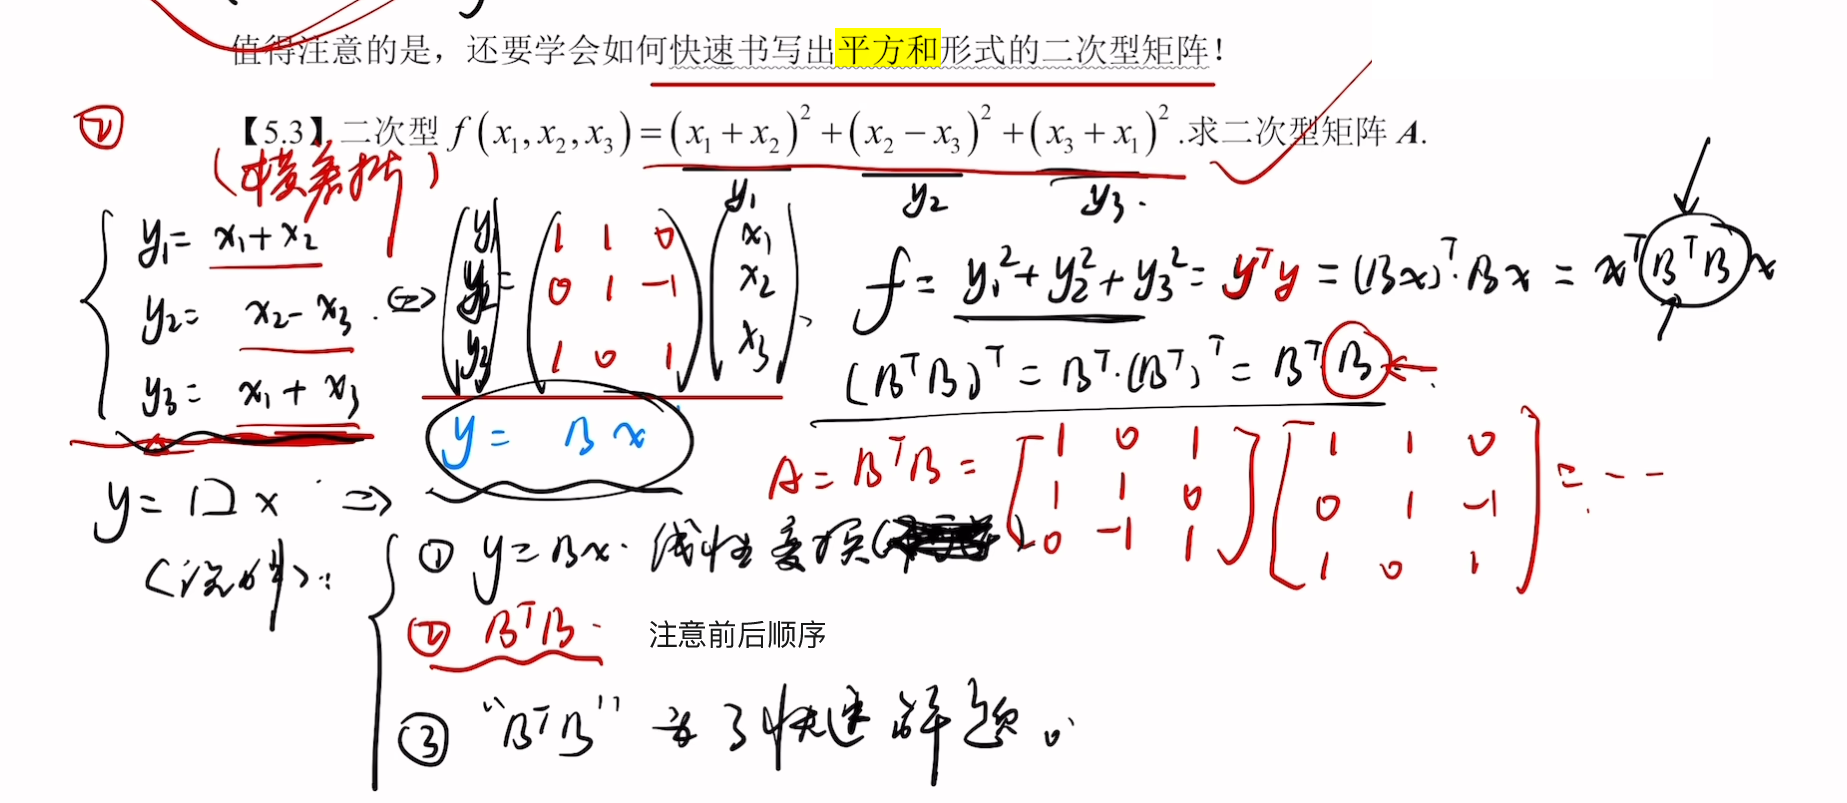 值得注意的是，还要学会如何快速书写出平方和形式的二次型矩阵！
② 【5.3】二次型 f(x₁,x₂,x₃)=(x₁+x₂)²+(x₂−x₃)²+(x₃+x₁)².求二次型矩阵 A.
y₁ y₂ y₃.
y₁= x₁+x₂
y₂= x₂−x₃.
y₃= x₁+x₃
⇔ (y₁ y₂ y₃) = (1 1 0; 0 1 −1; 1 0 1) (x₁ x₂ x₃)
y = B x
f = y₁²+y₂²+y₃² = yᵀy = (Bx)ᵀ·Bx = xᵀBᵀBx
(BᵀB)ᵀ = Bᵀ·(Bᵀ)ᵀ = BᵀB
A = BᵀB = [1 0 1; 1 1 0; 0 −1 1] [1 1 0; 0 1 −1; 1 0 1] = - - -
y = □ x ⇒
① y=Bx. 线性变换
② BᵀB. 注意前后顺序
③ “BᵀB” 为了快速解题。